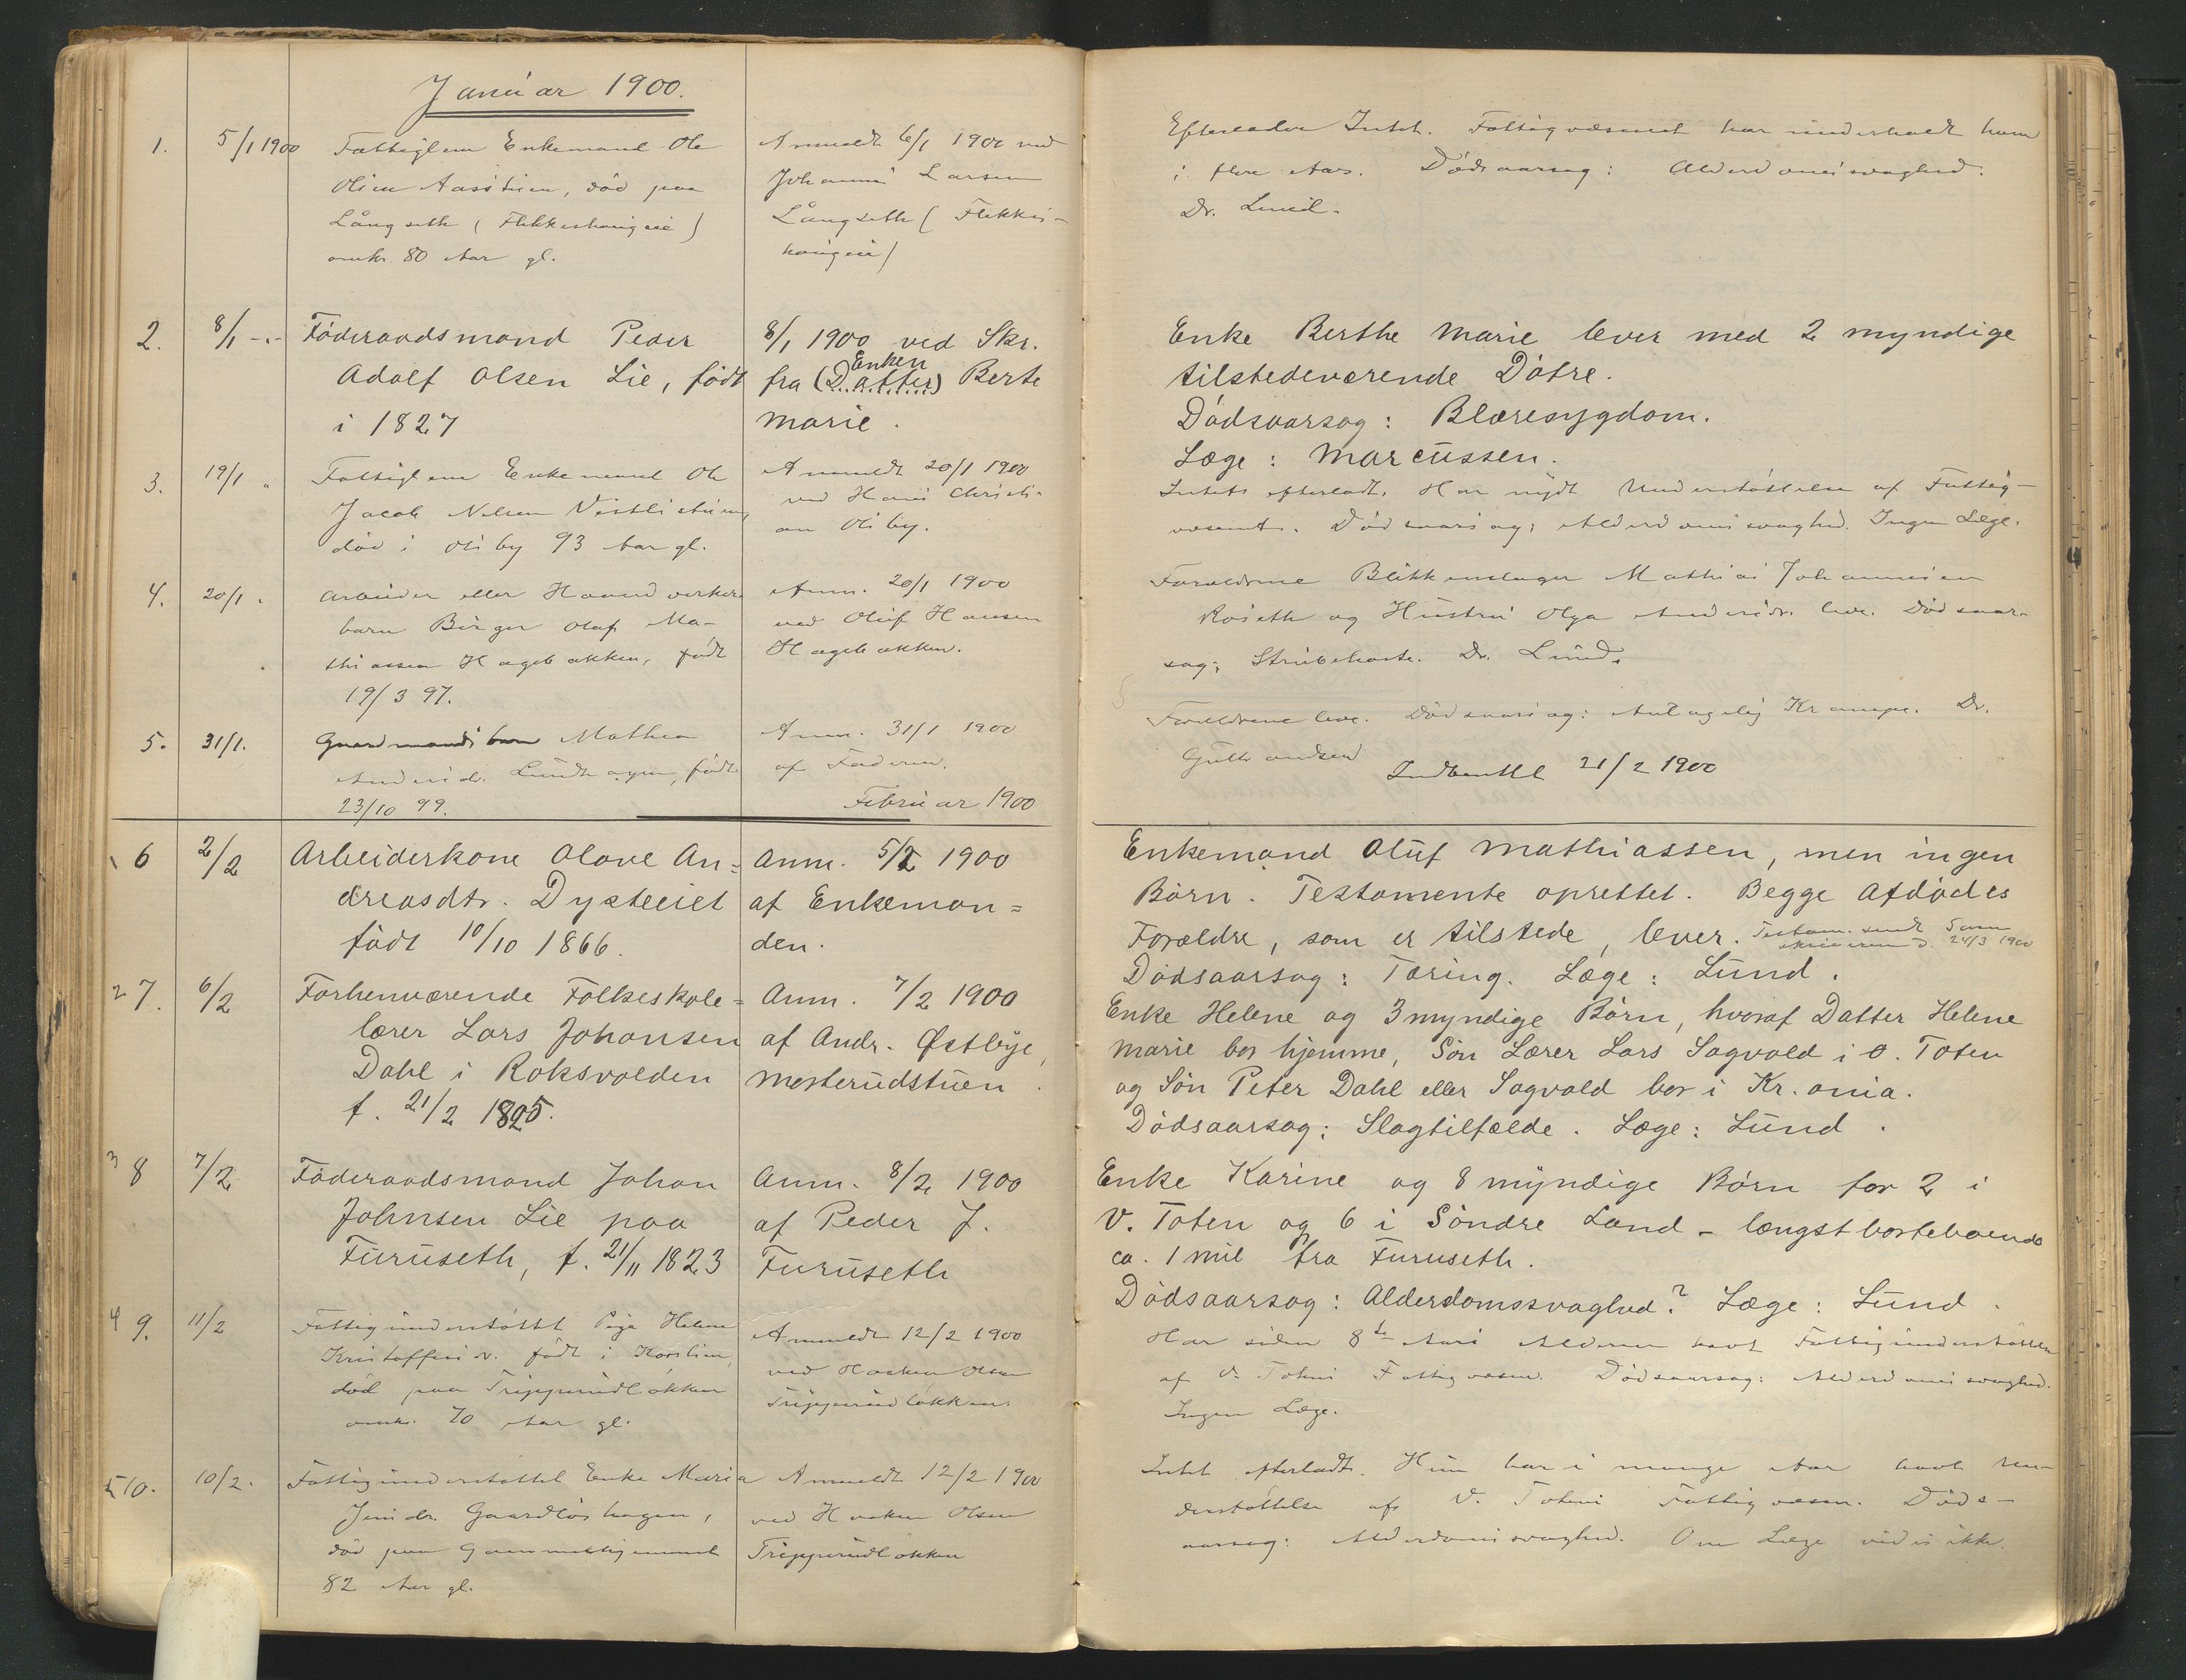 Januar 1900.
1. 5/1 1900 Fattiglem Enkemand Ole
Olsen Aasstuen, død paa
Långseth (Flikkeshaugeie)
omkr. 80 Aar gl.
Anmeldt 6/1 1900 ved
Johannes Larsen
Långseth (Flikkes-
haugeie)
Efterlader Intet. Fattigvæsenet har underholdt ham
i flere Aar. Dødsaarsag: Alderdomssvaghed.
Dr. Lund.
2. 8/1 -.- Føderaadsmand Peder
Adolf Olsen Lie, født
i 1827
8/1 1900 ved Skr.
Enken
fra (Datter) Berte
Marie.
Enke Berthe Marie lever med 2 myndige
tilstedeværende Døtre.
Dødsaarsag: Blæresygdom.
Læge: Marcussen.
3. 19/1 " Fattiglem Enkemand Ole
Jacob Nelsen Vestlistuen,
død i Olsby 93 Aar gl.
Anmeldt 20/1 1900
ved Hans Christi-
an Olsby.
Intet efterladt. Har nydt Understøttelse af Fattig-
væsenet. Dødsaarsag: Alderdomssvaghed. Ingen Læge.
4. 20/1 " Arbeider eller Haandverker
barn Birger Olaf Ma-
thiassen Hagebakken, født
19/3 97.
Anm. 20/1 1900
ved Oluf Hansen
Hagebakken.
Forældrene Blikkenslager Mathias Johannesen
Roseth og Hustru Olga Andersdr. leve. Dødsaar-
sag: Strubehoste. Dr. Lund.
5. 31/1. Gaardmandsbarn Mathea
Andersdr. Lundhagen, født
23/10 99.
Anm. 31/1 1900
af Faderen.
Forældrene leve. Dødsaarsag: Antagelig Krampe. Dr.
Gulbrandsen
Indberettet 21/2 1900
Februar 1900
1 6 2/2 Arbeiderkone Olave An=
dreasdtr. Dysteeiet
født 10/10 1866.
Anm. 5/2 1900
af Enkeman=
den.
Enkemand Oluf Mathiassen, men ingen
Børn. Testamente oprettet. Begge Afdødes
Forældre, som er tilstede, lever. Testam. sendt Soren-
skriveren d. 24/3 1900
Dødsaarsag: Tæring. Læge: Lund.
2 7. 6/2 Forhenværende Folkeskole=
lærer Lars Johansen
Dahl i Roksvolden
f. 21/2 1825.
Anm. 7/2 1900
af Andr. Østbye,
Mesterudstuen.
Enke Helene og 3 myndige Børn, hvoraf Datter Helene
Marie bor hjemme, Søn Lærer Lars Sagvold i Ø. Toten
og Søn Peter Dahl eller Sagvold bor i Kr.ania.
Dødsaarsag: Slagtilfælde. Læge: Lund.
3 8 7/2 Føderaadsmand Johan
Johnsen Lie paa
Furuseth, f. 21/11 1823
Anm. 8/2 1900
af Peder J.
Furuseth
Enke Karine og 8 myndige Børn for 2 i
V. Toten og 6 i Søndre Land - længst borteboende
ca. 1 mil fra Furuseth.
Dødsaarsag: Alderdomssvaghed? Læge: Lund.
4 9. 11/2 Fattigunderstøttet Pige Helene
Kristoffersdr. født i Korslien,
død paa Tripperudløkken
omkr. 70 Aar gl.
Anmeldt 12/2 1900
ved Haaken Olsen
Tripperudløkken.
Har siden 8de Aars Alderen havt Fattigunderstøttelse
af V. Totens Fattigvæsen. Dødsaarsag: Alderdomssvaghed.
Ingen Læge.
5 10. 10/2. Fattigunderstøttet Enke Maria
Jensdr. Gaardløshagen,
død paa Gammelhjemmet
82 Aar gl.
Anmeldt 12/2 1900
ved Haaken Olsen
Tripperudløkken
Intet efterladt. Hun har i mange Aar havt Un-
derstøttelse af V. Totens Fattigvæsen. Døds-
aarsag: Alderdomssvaghed. Om Læge vides ikke.